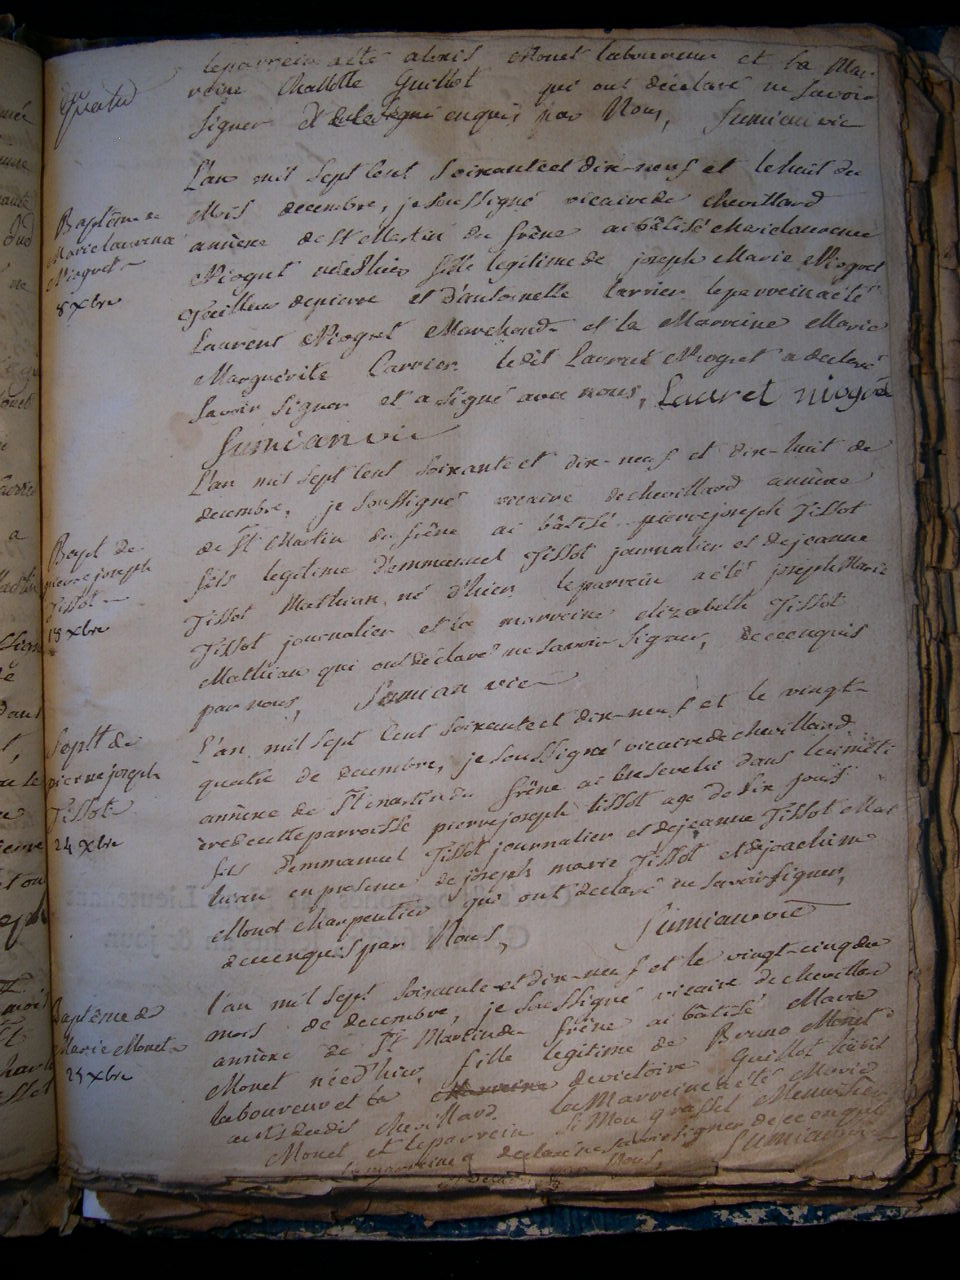 le parrein a été alexis Monet laboureur et la Mar-
reine Charlotte Guillot qui ont déclaré ne savoir
signer de ce enquis par Nous, Sumian vic
L'an mil sept cent soixante et dix-neuf et le huit du
Baptême de
Marie laurence
Niogret
8 xbre
Mois decembre, je soussigné vicaire de chevillard
annèxe de St Martin du frêne ai bâtisé Marie laurence
Niogret née d'hier fille legitime de joseph Marie Niogret
Tailleur de pierre et d'antoinette Carrier le parrein a été
Laurent Niogret Marchand et la Marreine Marie
Marguérite Carrier le dit Laurent Niogret a declaré
savoir signer et a signé avec nous, Lauret niogret
Sumian vic
L'an mil sept cent soixante et dix-neuf et dix-huit de
decembre, je soussigné vicaire de chevillard annèxe
de St Martin du frêne ai bâtisé pierre joseph Tissot
Bapt de
pierre joseph
Tissot
18 xbre
fils legitime d'emmanuel Tissot journalier et de jeanne
Tissot Mathian, né d'hier le parrein a été joseph Marie
Tissot journalier et la marreine elizabeth Tissot
Mathian qui ont déclaré ne savoir signer, de ce enquis
par nous, Sumian vic
L'an mil sept cent soixante et dix-neuf et le vingt-
Seplt de
pierre joseph
Tissot
24 xbre
quatre de decembre, je soussigné vicaire de chevillard
annèxe de St martin du frêne ai ensevelit dans le cimeti-
ere de cette parroisse pierre joseph tissot agé de six jours
fils d'emmanuel Tissot journalier et de jeanne Tissot Mat
hian en presence de joseph marie Tissot et de joachim
Monet charpentier qui ont declaré ne savoir signer,
de ce enquis par Nous, Sumian vic
l'an mil sept soixante et dix-neuf et le vingt-cinq du
Baptême de
Marie Monet
25 xbre
mois de decembre, je soussigné vicaire de chevillard
annèxe de St Martin du frêne ai bâtisé Marie
Monet née d'hier, fille legitime de Bruno Monet
laboureur et de victoire Guillot habit
chevillard la Marreine a été Marie
Monet et le parrein Simon grasset Menuisier
la marreine a declaré ne savoir signer de ce enquis
par Nous, Sumian vic